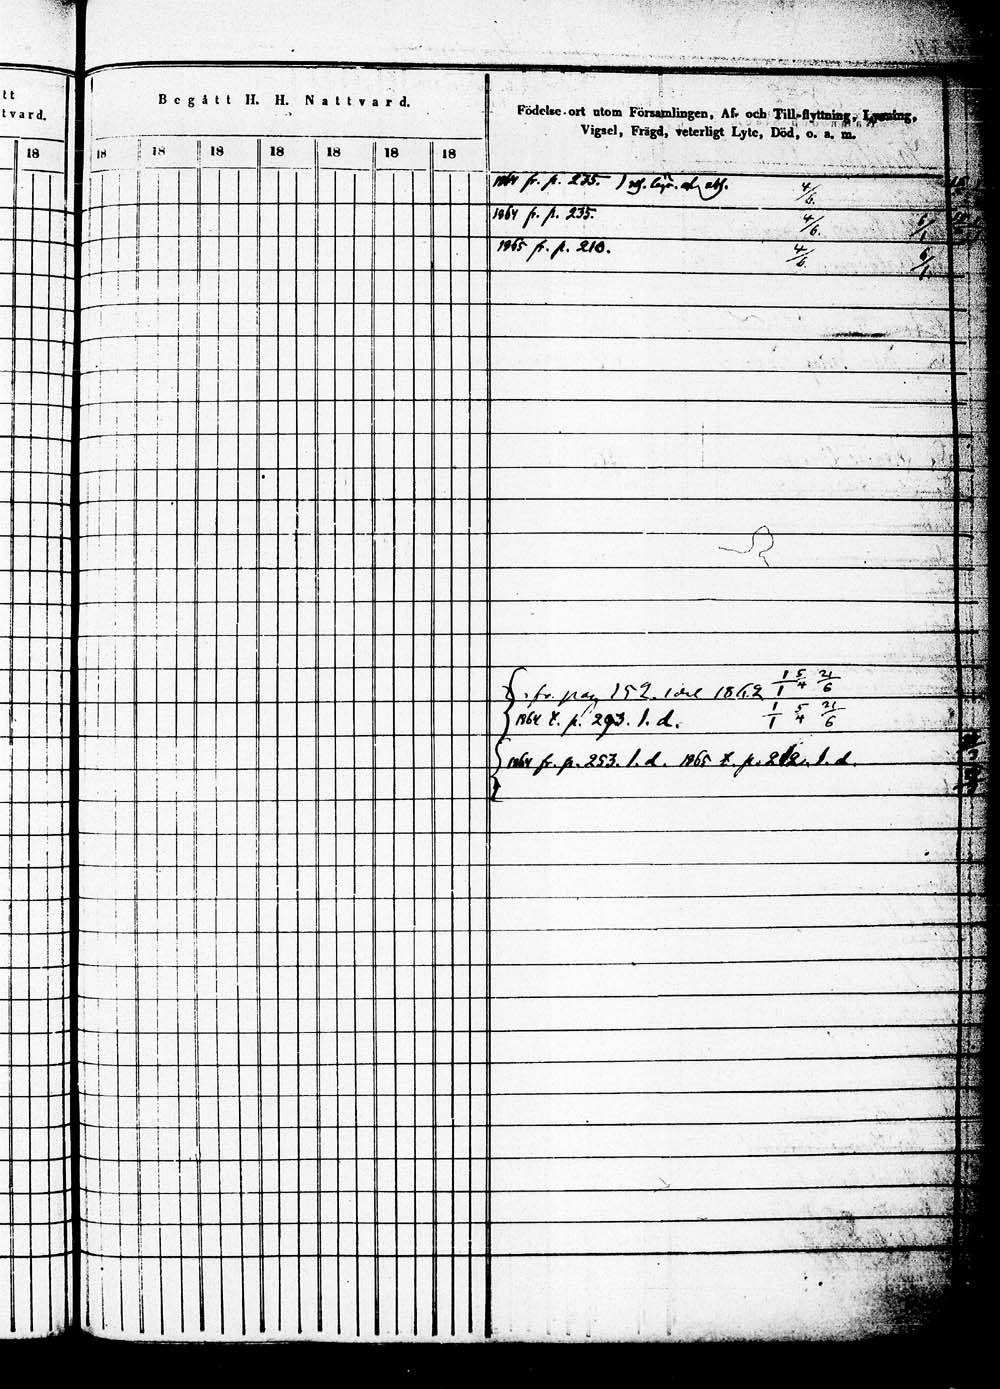 tt
tvard.
18
Begått H. H. Nattvard.
18 18 18 18 18 18 18
Födelse-ort utom Församlingen, Af- och Till-flyttning, Lysning,
Vigsel, Frägd, veterligt Lyte, Död, o. a. m.
1864 fr. p. 235. 4/6.
1864 fr. p. 235. 4/6. 6/1
1865 fr. p. 210. 4/6. 6/1.
fr. pag 252. 1862 1/1 5/4 21/6
1864 t. p. 293. l. d. 1/1 5/4 21/6
1864 fr. p. 253. l. d. 1865 t. p. 212. l. d.